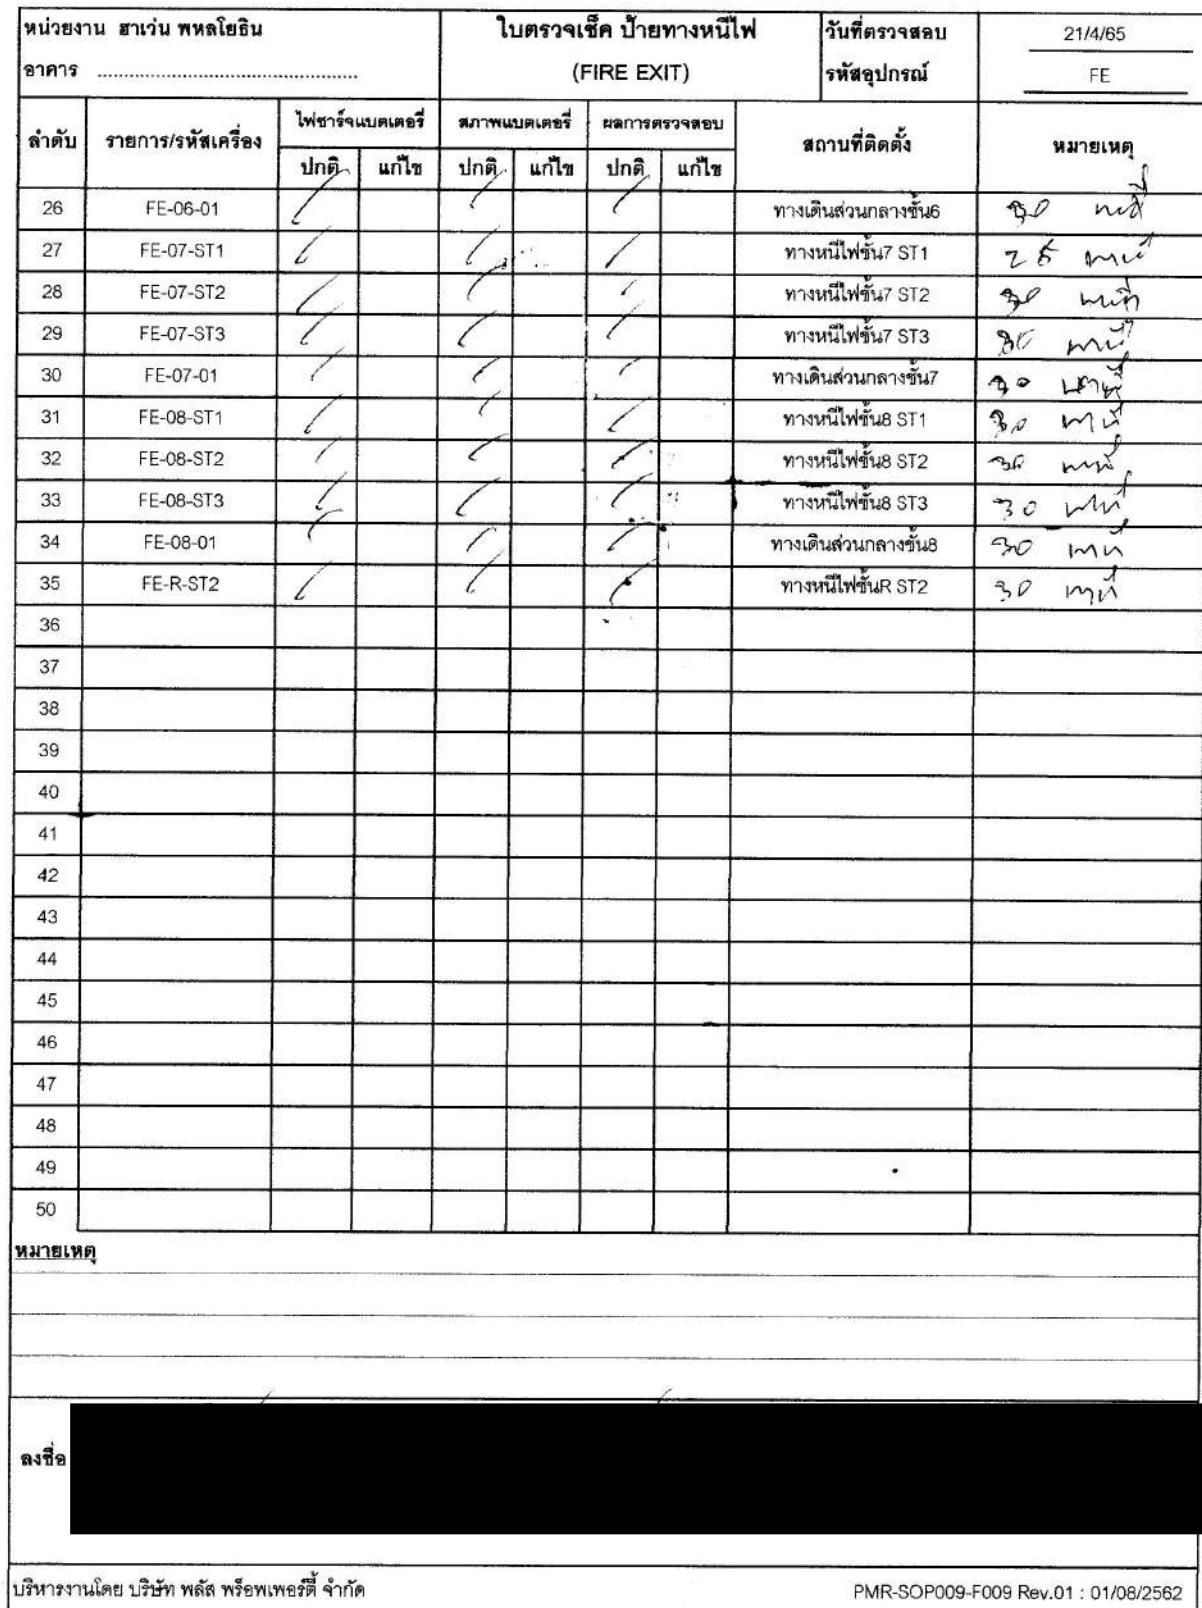 หน่วยงาน ฮาเว่น พหลโยธิน
ใบตรวจเช็ค ป้ายทางหนีไฟ
วันที่ตรวจสอบ 21/4/65
อาคาร ............................................
(FIRE EXIT)
รหัสอุปกรณ์ FE
ลำดับ รายการ/รหัสเครื่อง ไฟชาร์จแบตเตอรี่ สภาพแบตเตอรี่ ผลการตรวจสอบ สถานที่ติดตั้ง หมายเหตุ
ปกติ แก้ไข ปกติ แก้ไข ปกติ แก้ไข
26 FE-06-01 / / / ทางเดินส่วนกลางชั้น6 30 นาที
27 FE-07-ST1 / / / ทางหนีไฟชั้น7 ST1 25 นาที
28 FE-07-ST2 / / / ทางหนีไฟชั้น7 ST2 30 นาที
29 FE-07-ST3 / / / ทางหนีไฟชั้น7 ST3 30 นาที
30 FE-07-01 / / / ทางเดินส่วนกลางชั้น7 30 นาที
31 FE-08-ST1 / / / ทางหนีไฟชั้น8 ST1 30 นาที
32 FE-08-ST2 / / / ทางหนีไฟชั้น8 ST2 30 นาที
33 FE-08-ST3 / / / ทางหนีไฟชั้น8 ST3 30 นาที
34 FE-08-01 / / / ทางเดินส่วนกลางชั้น8 30 นาที
35 FE-R-ST2 / / / ทางหนีไฟชั้นR ST2 30 นาที
36
37
38
39
40
41
42
43
44
45
46
47
48
49
50
หมายเหตุ
ลงชื่อ
บริหารงานโดย บริษัท พลัส พร็อพเพอร์ตี้ จำกัด
PMR-SOP009-F009 Rev.01 : 01/08/2562